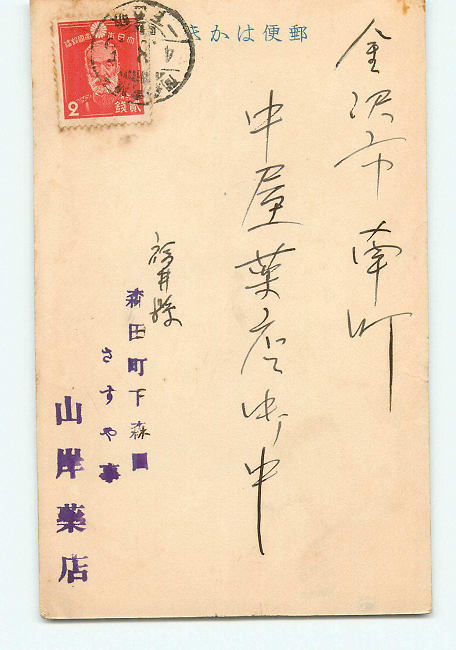 郵便はかき
金沢市南町
中屋薬店御中
福井縣
森田町下森田
さすや事
山岸薬店
大日本帝國郵便
2
貳錢